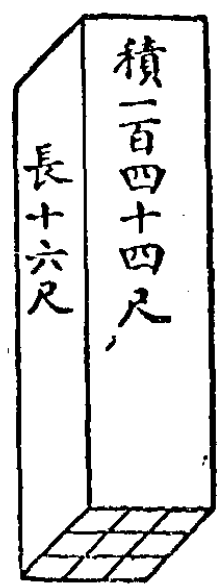 積一百四十四尺
長十六尺